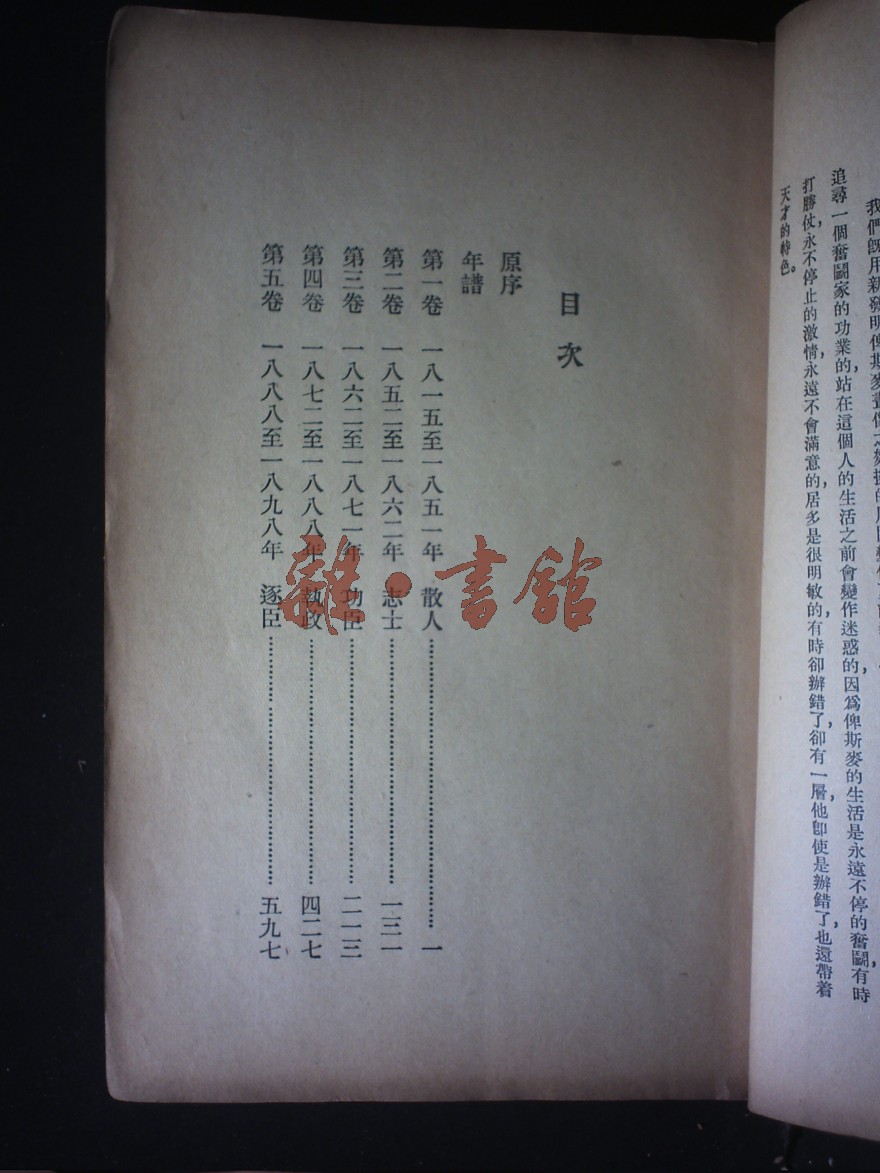 我們既用新發明俾斯麥畫像之
追尋一個奮鬭家的功業的，站在這個人的生活之前會變作迷惑的，因爲俾斯麥的生活是永遠不停的奮鬭，有時
打勝仗，永不停止的激情，永遠不會滿意的，居多是很明敏的，有時卻辦錯了，卻有一層，他卽使是辦錯了，也還帶着
天才的特色。
目次
原序
年譜
第一卷 一八一五至一八五一年 散人……一
第二卷 一八五二至一八六二年 志士……一三一
第三卷 一八六二至一八七一年 功臣……二一三
第四卷 一八七二至一八八八年 執政……四二七
第五卷 一八八八至一八九八年 逐臣……五九七
雜·書館